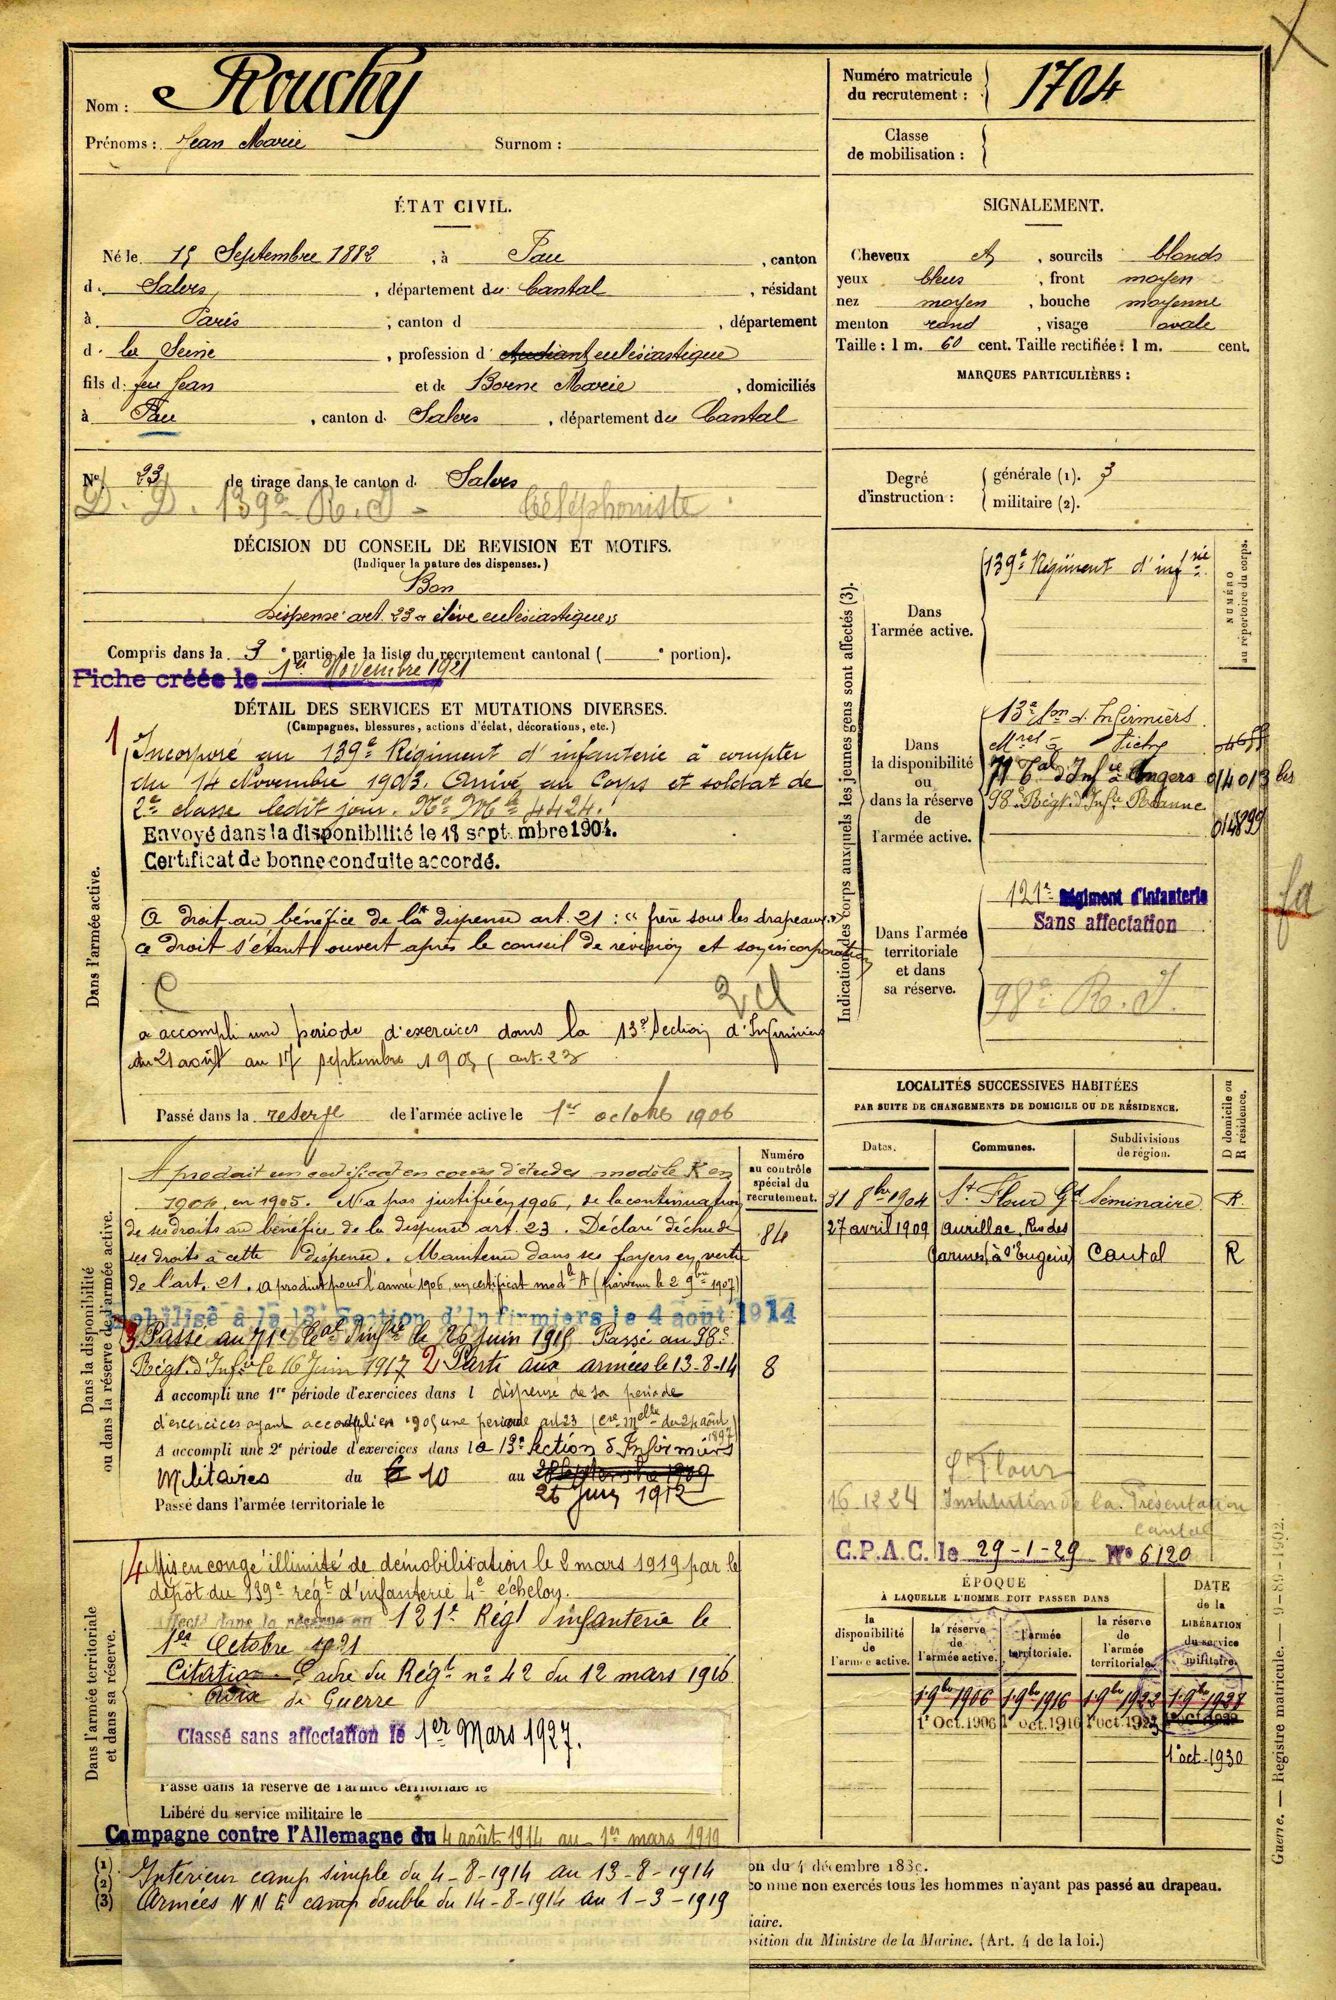 Nom : Rouchy
Prénoms : Jean Marie Surnom :
Numéro matricule
du recrutement : 1704
Classe
de mobilisation :
ÉTAT CIVIL.
Né le 15 Septembre 1882, à Pau, canton
d. Salers, département du Cantal, résidant
à Paris, canton d , département
d. la Seine, profession d' étudiant ecclésiastique
fils d. feu Jean et de Borne Marie, domiciliés
à Pau, canton d. Salers, département du Cantal
N° 23 de tirage dans le canton d. Salers
D. D. 139e R.I - téléphoniste
DÉCISION DU CONSEIL DE REVISION ET MOTIFS.
(Indiquer la nature des dispenses.)
Bon
Dispensé art. 23 élève ecclésiastique
Compris dans la 3e partie de la liste du recrutement cantonal ( e portion).
Fiche créée le 1er Novembre 1921
SIGNALEMENT.
Cheveux , sourcils blonds
yeux bleus, front moyen
nez moyen, bouche moyenne
menton rond, visage ovale
Taille : 1 m. 60 cent. Taille rectifiée : 1 m. cent.
MARQUES PARTICULIÈRES :
Degré
d'instruction :
générale (1). 3
militaire (2).
DÉTAIL DES SERVICES ET MUTATIONS DIVERSES.
(Campagnes, blessures, actions d'éclat, décorations, etc.)
Dans l'armée active.
1 Incorporé au 139e Régiment d'infanterie à compter
du 14 Novembre 1903. Arrivé au Corps et soldat de
2e classe ledit jour. No Mle 4424.
Envoyé dans la disponibilité le 18 sept mbre 1904.
Certificat de bonne conduite accordé.
A droit au bénéfice de la dispense art. 21 : "frère sous les drapeaux"
ce droit s'étant ouvert après le conseil de révision et son incorporation
a accompli une période d'exercices dans la 13e Section d'Infirmiers
du 21 août au 17 septembre 1905 (art. 23
Passé dans la reserve de l'armée active le 1er octobre 1906
Indication des corps auxquels les jeunes gens sont affectés (3).
NUMÉRO
au répertoire du corps.
Dans
l'armée active.
139e Régiment d'infrie
Dans
la disponibilité
ou
dans la réserve
de
l'armée active.
13e Son d. Infirmiers
Mres à Vichy
71 t al d'Infie Angers 014013 bis
98e Régt d'Infie Roanne
014899
Dans l'armée
territoriale
et dans
sa réserve.
121e Régiment d'Infanterie
Sans affectation
98e R.I.
fa
Dans la disponibilité
ou dans la réserve de l'armée active.
Numéro
au contrôle
spécial du
recrutement.
84
8
A produit un certificat en cours d'études modèle K en
1904, en 1905. N'a pas justifié en 1906, de la continuation
de ses droits au bénéfice de la dispense art. 23. Déclaré déchu de
ses droits à cette dispense. Maintenu dans ses foyers en vertu
de l'art. 21. a produit pour l'année 1906 un certificat modle A (parvenu le 2 9bre 1907)
Mobilisé à la 13e Section d'Infirmiers le 4 août 1914
3 Passé au 71e d'Infie le 26 juin 1915 Passé au 98e
Régt. d'Infie le 16 Juin 1917 2 Parti aux armées le 13-8-14
A accompli une 1re période d'exercices dans l dispensé de sa période
d'exercices ayant accompli en 1905 une période art 23 (cre melle du 24 août 1897)
A accompli une 2e période d'exercices dans la 13e Section d'Infirmiers
Militaires du 10 au 26 Juin 1912
Passé dans l'armée territoriale le
LOCALITÉS SUCCESSIVES HABITÉES
PAR SUITE DE CHANGEMENTS DE DOMICILE OU DE RÉSIDENCE.
Dates. Communes. Subdivisions de région. D domicile ou R résidence.
31 8bre 1904 St Flour Gd Séminaire R
27 avril 1909 Aurillac, Rue des
Carmes, à l'Eugénie Cantal R
St Flour
16 12 24 Institution de la Présentation
Cantal
C.P.A.C. le 29-1-29 N° 6120
Dans l'armée territoriale
et dans sa réserve.
4 Mis en congé illimité de démobilisation le 2 mars 1919 par le
dépôt du 139e régt d'infanterie 4e échelon.
Affecté dans la réserve au 121e Régt d'infanterie le
1er Octobre 1921
Citation - l'ordre du Régt no 42 du 12 mars 1916
Croix de Guerre
Classé sans affectation le 1er Mars 1927.
Passé dans la réserve de l'armée territoriale le
Libéré du service militaire le
Campagne contre l'Allemagne du 4 août 1914 au 1er mars 1919
ÉPOQUE
À LAQUELLE L'HOMME DOIT PASSER DANS
DATE
de la
LIBÉRATION
du service
militaire.
la disponibilité de l'armée active. la réserve de l'armée active. l'armée territoriale. la réserve de l'armée territoriale.
1.9bre 1906 1.9bre 1916 1.9bre 1922 1.9bre 1928
1er Oct. 1906 1er oct. 1916 1er oct. 1923
1er oct. 1930
(1)
(2)
(3)
Intérieur camp simple du 4-8-1914 au 13-8-1914
Armées N N E camp double du 14-8-1914 au 1-3-1919
on du 4 décembre 1889.
comme non exercés tous les hommes n'ayant pas passé au drapeau.
iaire.
osition du Ministre de la Marine. (Art. 4 de la loi.)
Guerre. — Registre matricule. — 9-89-1902.